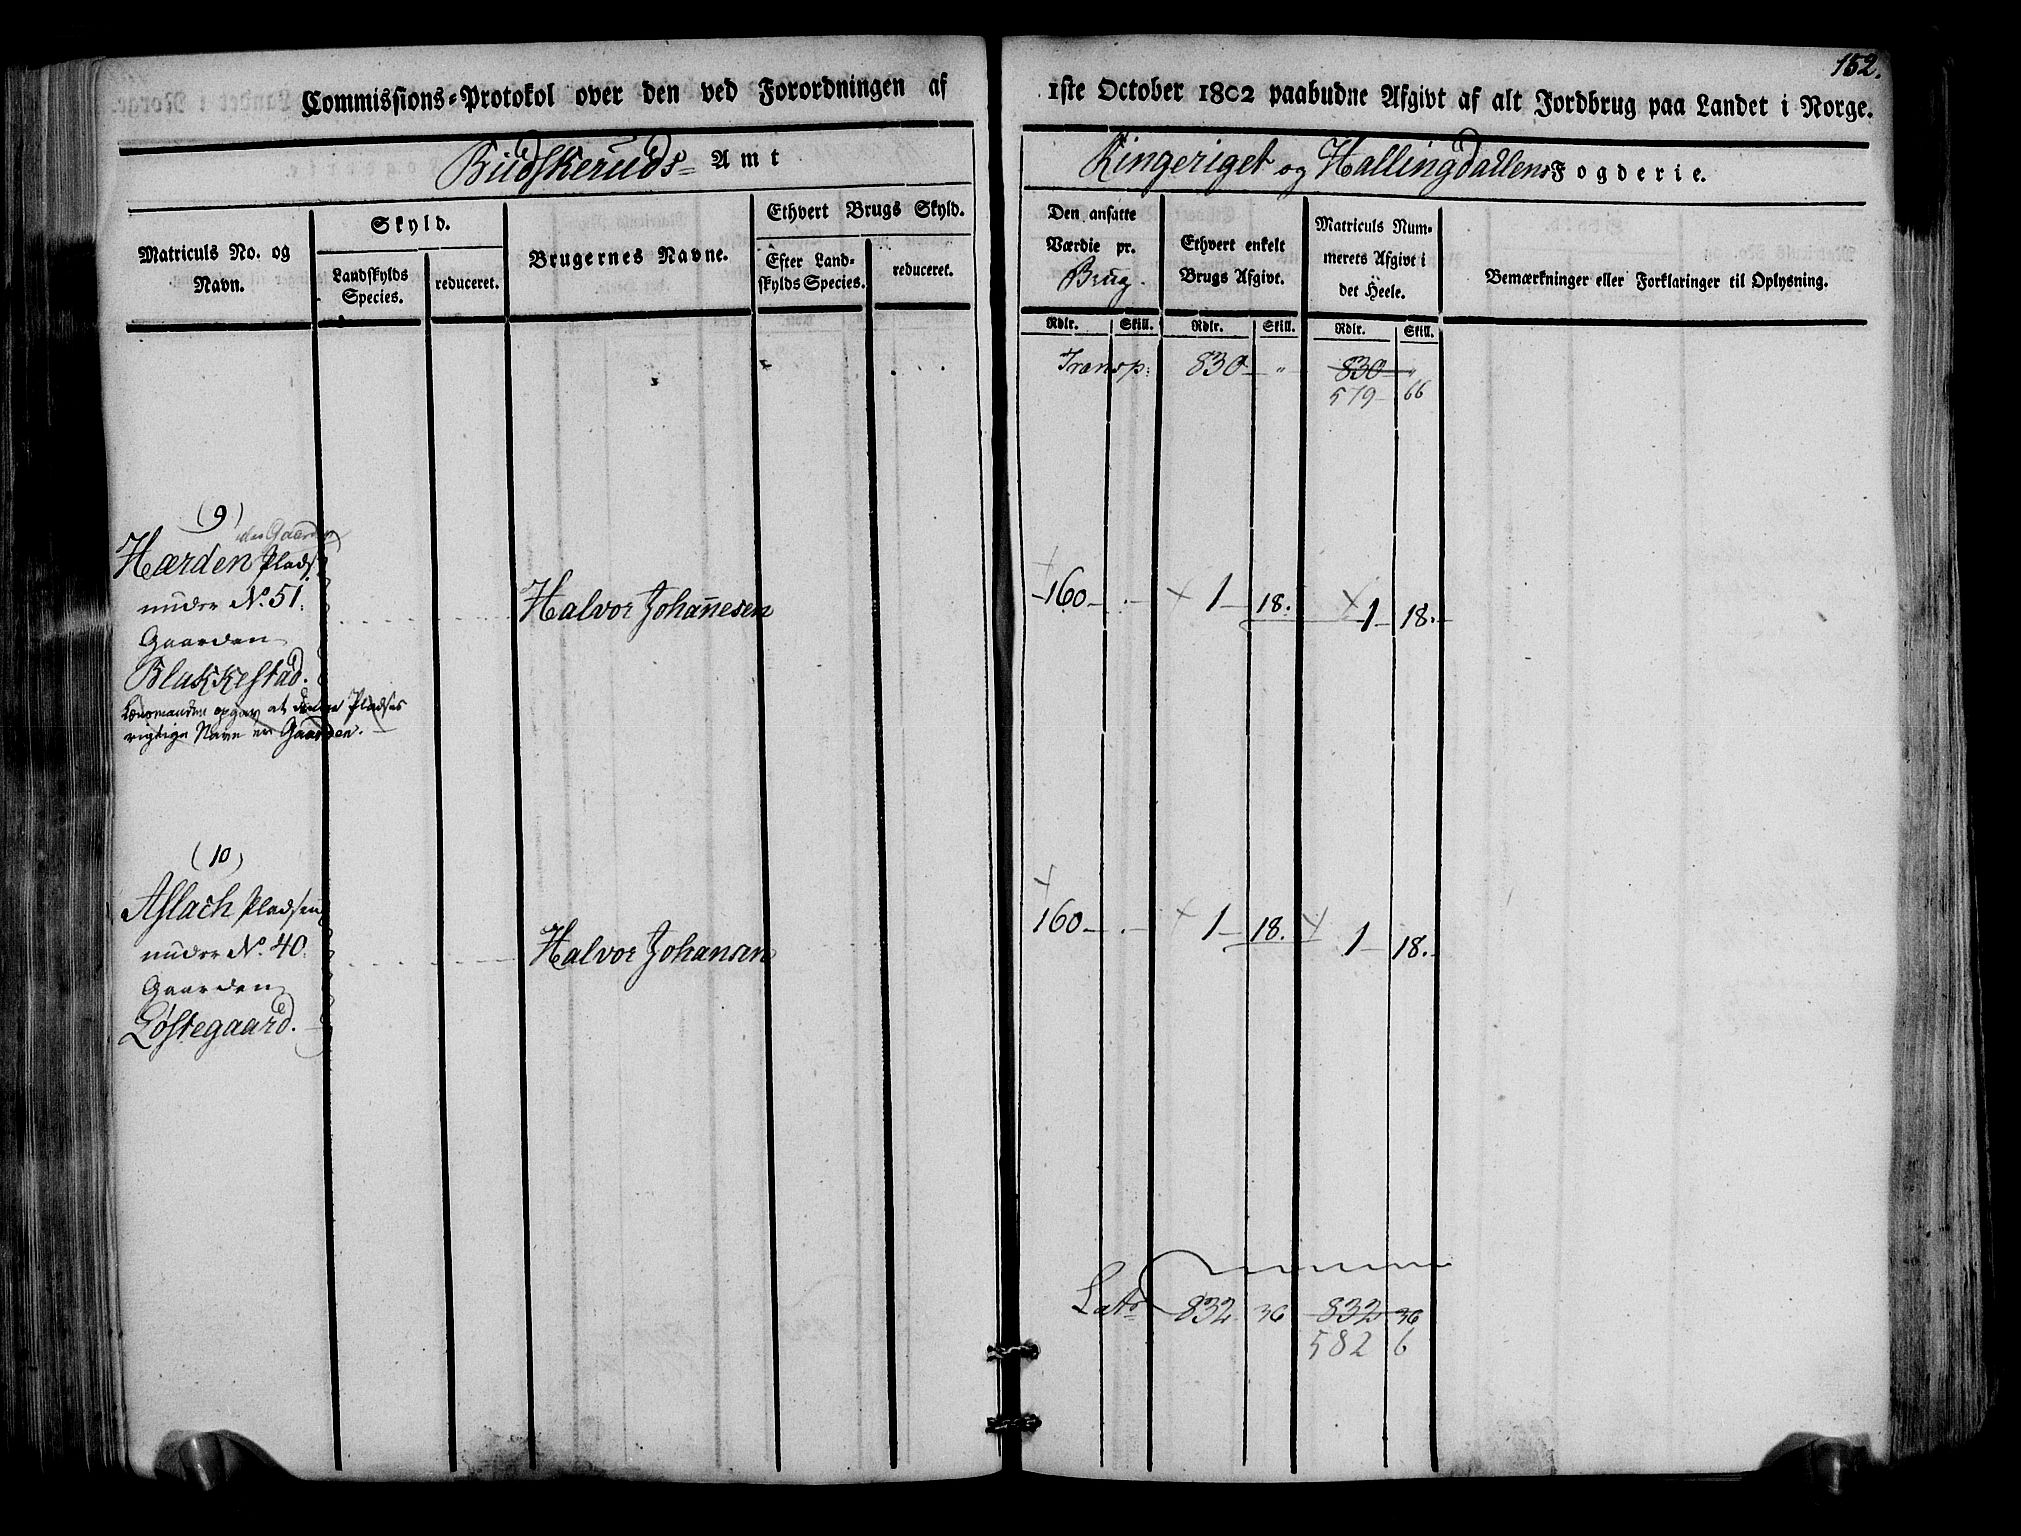 152.
Commissions-Protokol over den ved Forordningen af 1ste October 1802 paabudne Afgivt af alt Jordbrug paa Landet i Norge.
Budskeruds Amt
Ringeriget og Hallingdallens Fogderie.
Matriculs No. og Navn.
Skyld.
Landskylds Species.
reduceret.
Brugernes Navne.
Ethvert Brugs Skyld.
Efter Landskylds Species.
reduceret.
Den ansatte Værdie pr. Brug.
Ethvert enkelt Brugs Afgivt.
Matriculs Nummerets Afgivt i det Heele.
Bemærkninger eller Forklaringer til Oplysning.
Rdlr. Skill. Rdlr. Skill. Rdlr. Skill.
Transp: 830 " 830 "
579 66
(9)
Hærden Plads
under No. 51.
Gaarden
Blakkestad.
Halvor Johannesen
160 1 18. 1 18.
Lensmanden opgav at denne Pladses
rigtige Navn er Gaarden.
(10)
Aslach Pladsen
under No. 40.
Gaarden
Løstegaard.
Halvor Johansen
160 1 18. 1 18.
Lats 832 36 832 36
582 6